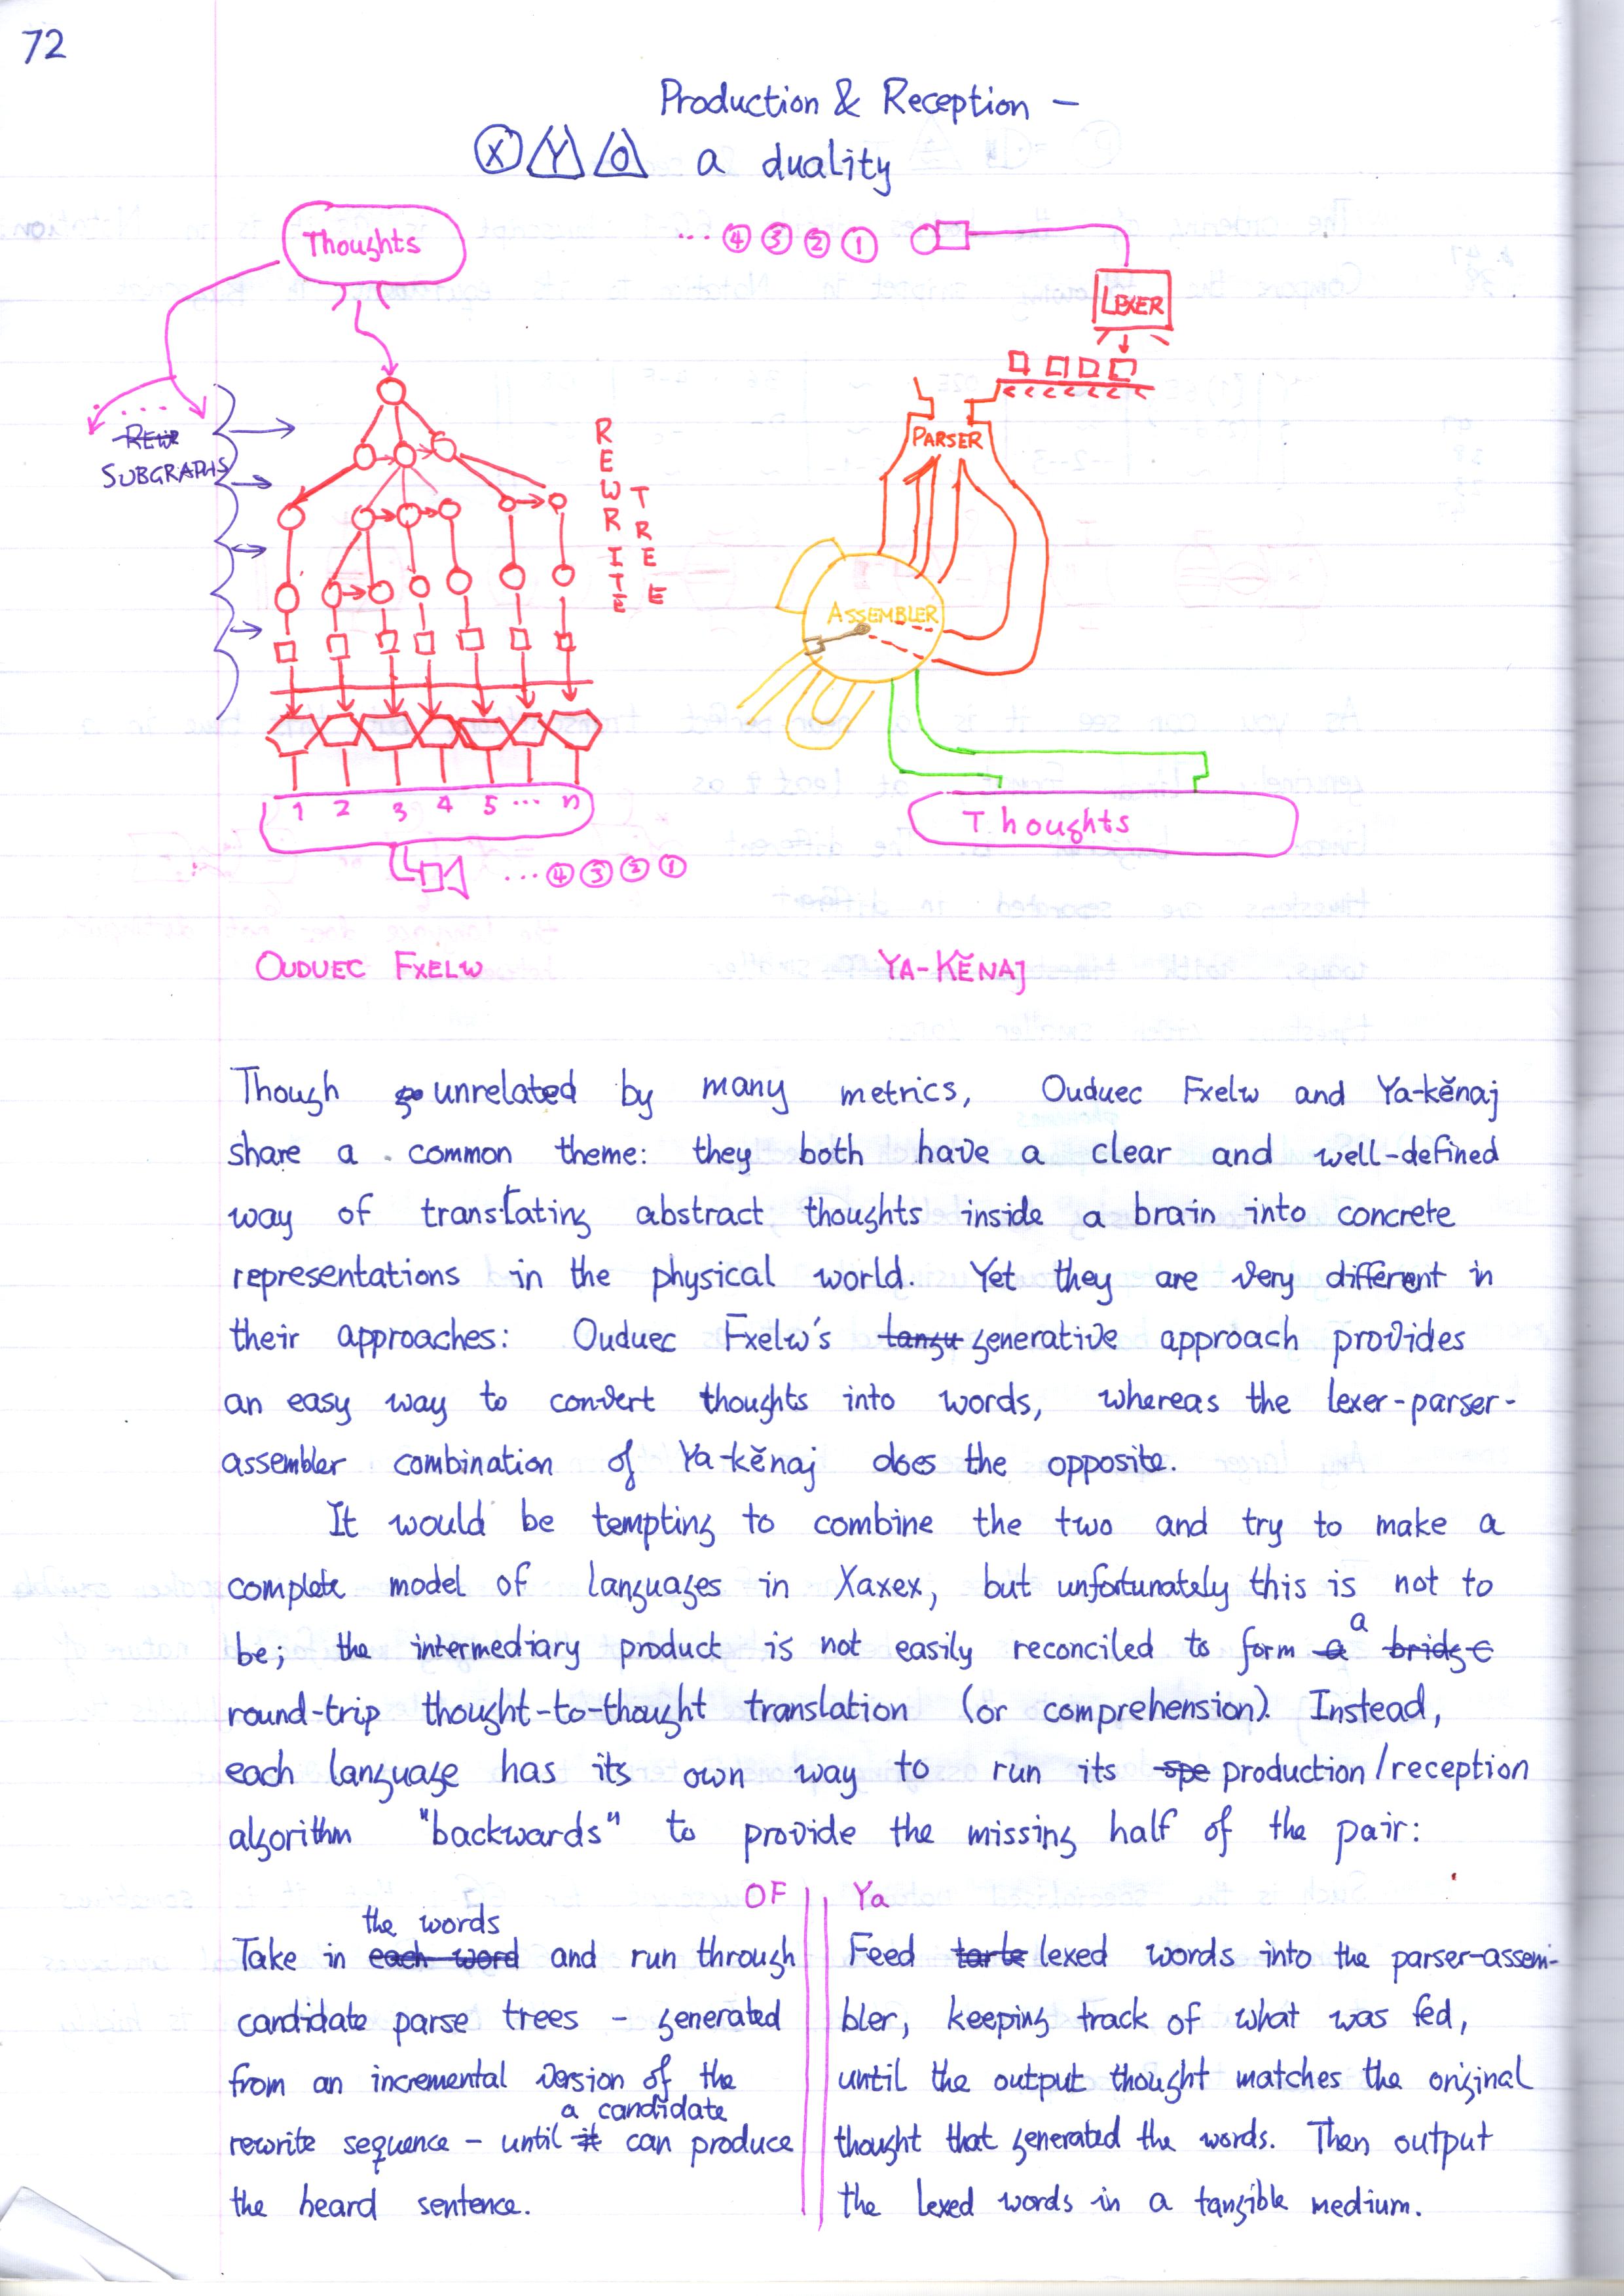 72
Production & Reception –
X Y O a duality
Thoughts
... ④ ③ ② ①
LEXER
PARSER
REWR
SUBGRAPHS
REWRITE
TREE
ASSEMBLER
1 2 3 4 5 ... n
Thoughts
... ④ ③ ② ①
OUDUEC FXELW YA-KĚNAJ
Though so unrelated by many metrics, Ouduec Fxelw and Ya-kĕnaj
share a common theme: they both have a clear and well-defined
way of translating abstract thoughts inside a brain into concrete
representations in the physical world. Yet they are very different in
their approaches: Ouduec Fxelw's langu generative approach provides
an easy way to convert thoughts into words, whereas the lexer-parser-
assembler combination of Ya-kĕnaj does the opposite.
It would be tempting to combine the two and try to make a
complete model of languages in Xaxex, but unfortunately this is not to
be; the intermediary product is not easily reconciled to form a a bridge
round-trip thought-to-thought translation (or comprehension). Instead,
each language has its own way to run its spe production/reception
algorithm "backwards" to provide the missing half of the pair:
OF
the words
Take in each word and run through
candidate parse trees – generated
from an incremental version of the
a candidate
rewrite sequence – until it can produce
the heard sentence.
Ya
Feed lexed words into the parser-assem-
bler, keeping track of what was fed,
until the output thought matches the original
thought that generated the words. Then output
the lexed words in a tangible medium.